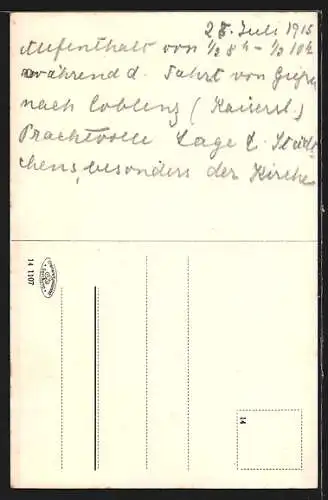 28. Juli 1915
Aufenthalt von 1/2 8 h - 1/2 10 h
während d. Fahrt von
nach Coblenz (Kaiserl.)
Prachtvolle Lage d. Städt
chens, besonders der Kirche
14 1107
14